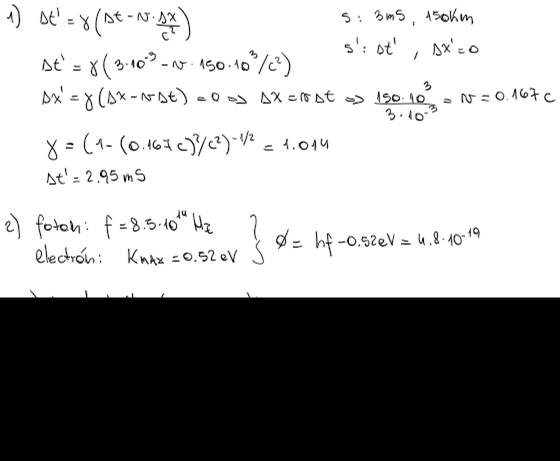 1) Δt' = γ(Δt - v·Δx/c²)
s: 3ms, 150km
s': Δt', Δx'=0
Δt' = γ(3·10⁻³ - v·150·10³/c²)
Δx' = γ(Δx - vΔt) = 0 => Δx = vΔt => 150·10³/3·10⁻³ = v = 0.167c
γ = (1-(0.167c)²/c²)^-1/2 = 1.014
Δt' = 2.95ms
2) foton: f = 8.5·10¹⁴ Hz
electrón: Kmax = 0.52eV } ϕ = hf - 0.52eV = 4.8·10⁻¹⁹